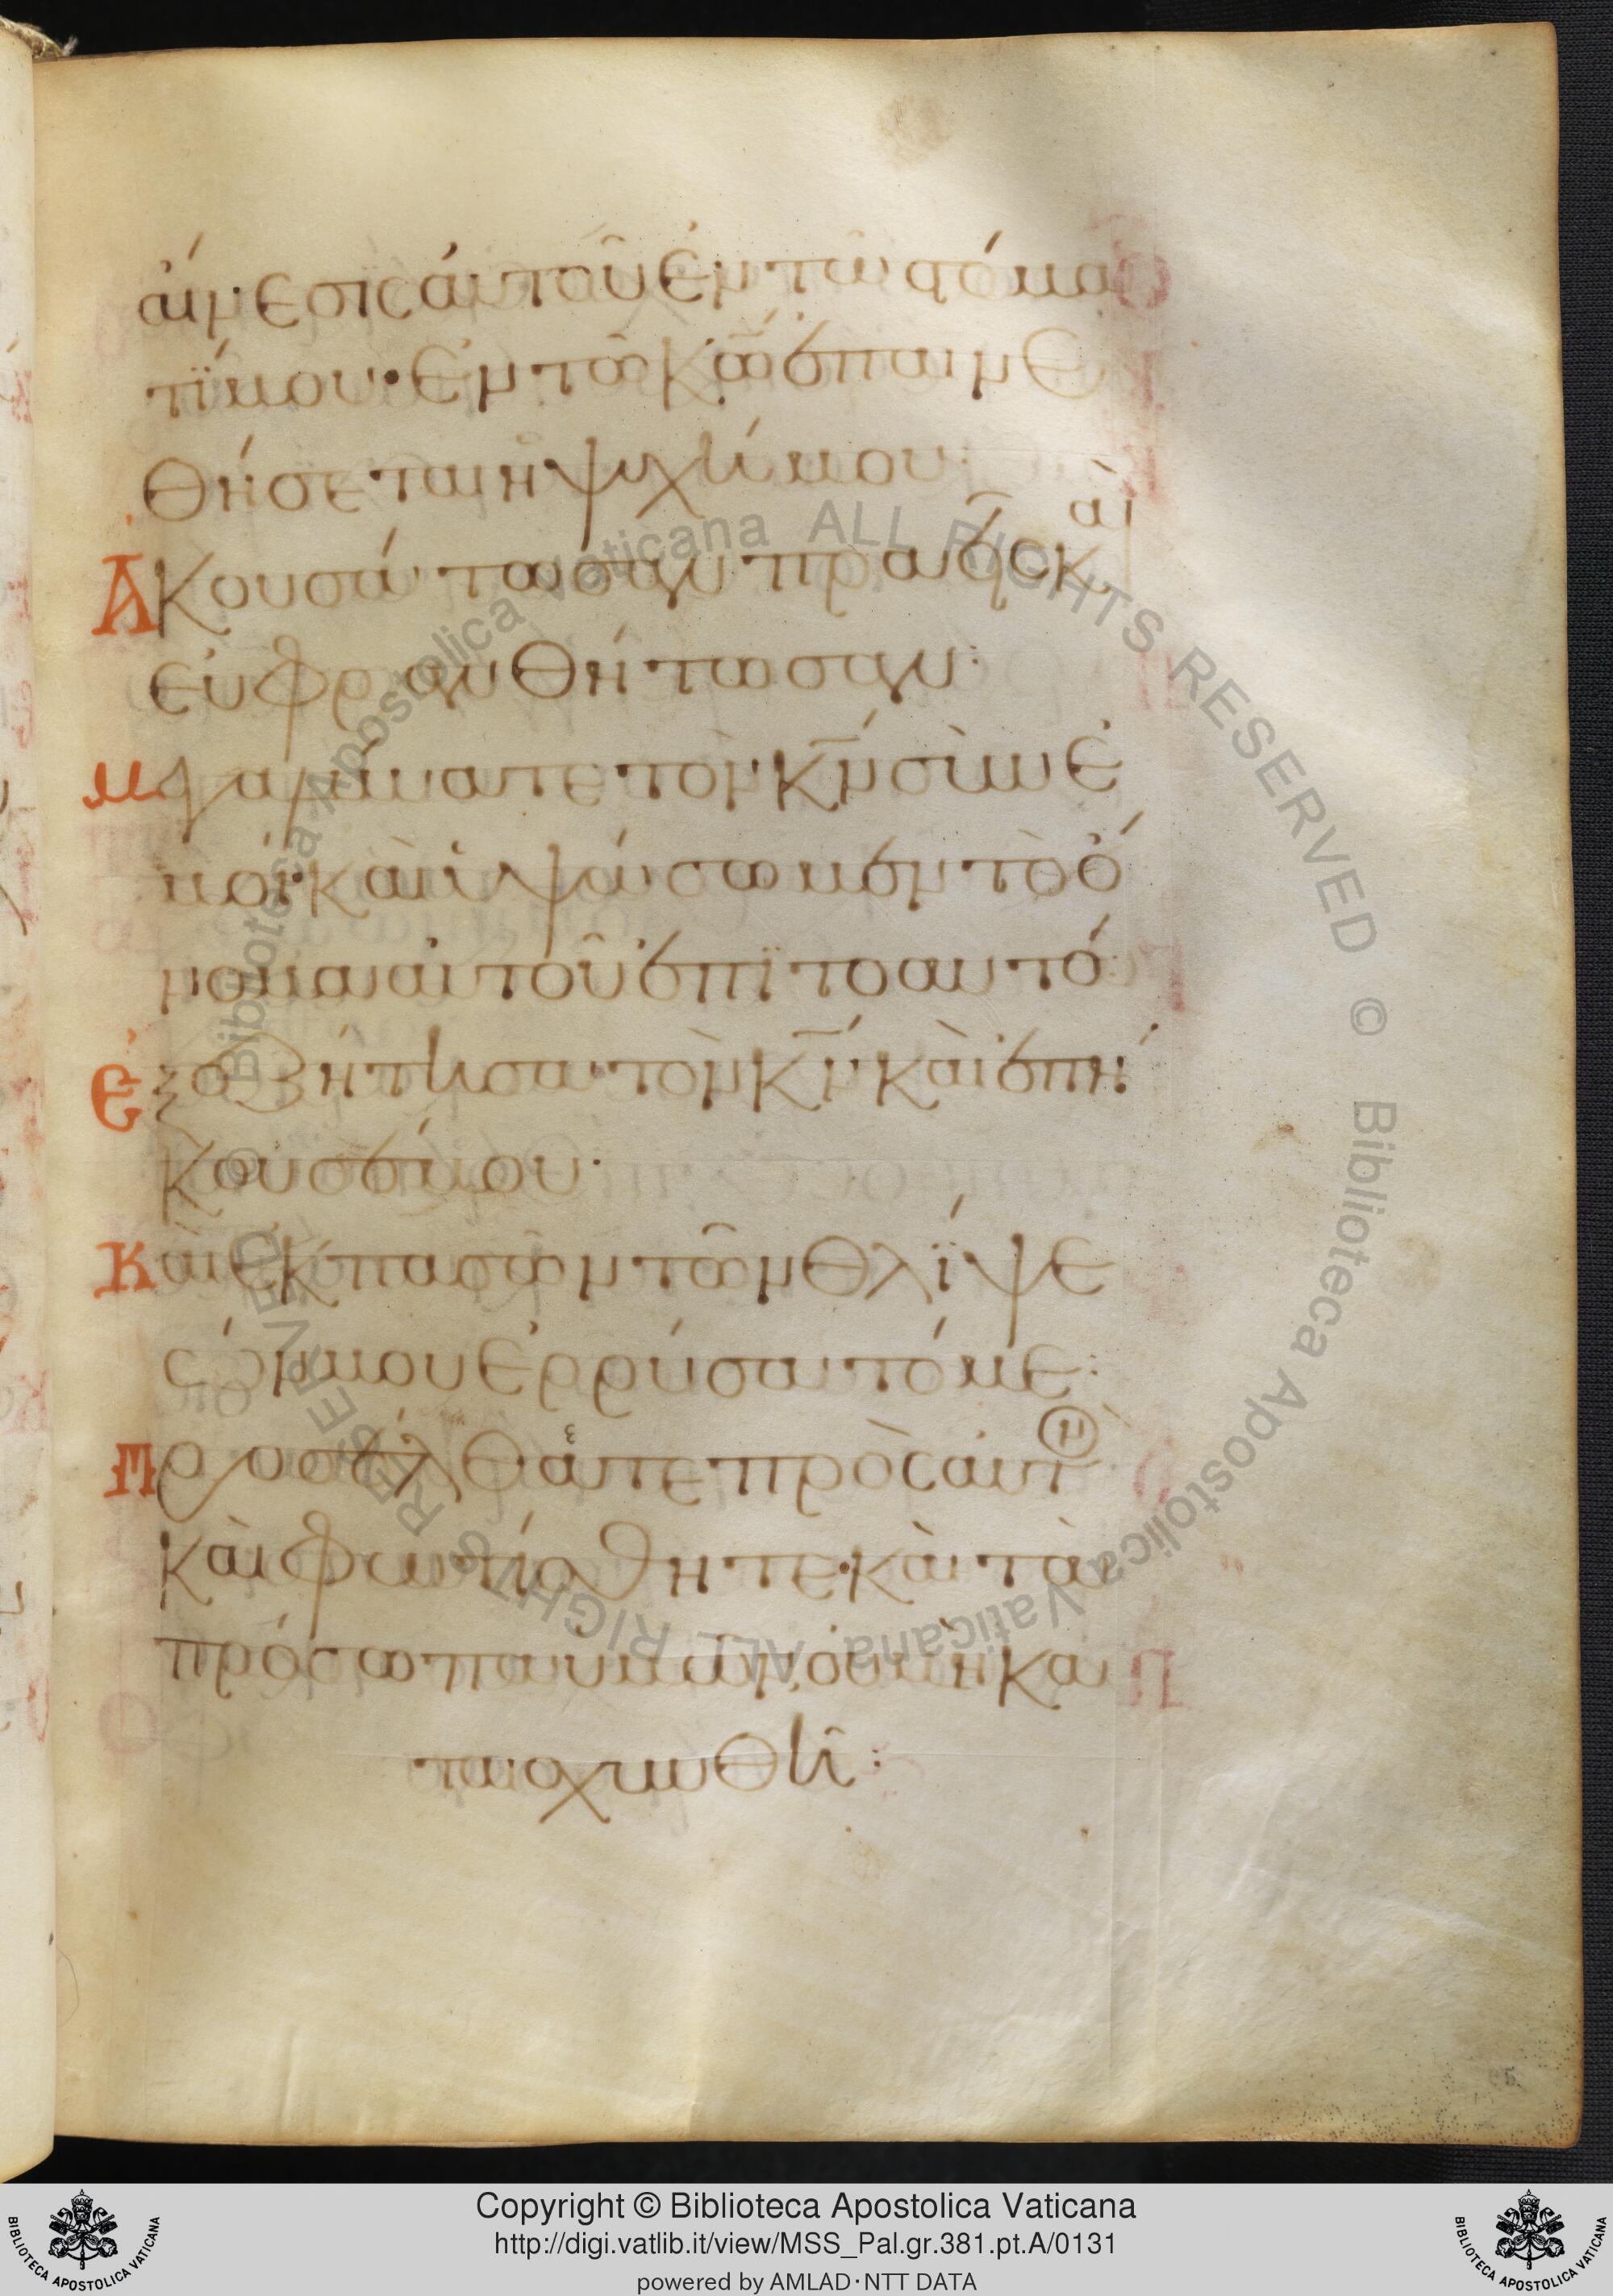 αἴνεσις ἀυτοῦ ἐν τῶ στόμα
τί μου· ἐν τῶ κῶ ἐπαινε
θήσεται ἡ ψυχή μου·
Ἀκουσάτωσαν πραεῖς καὶ
εὐφρανθήτωσαν·
Μεγαλύνατε τὸν κν σὺν ἐ
μοί· καὶ ὑψώσωμεν τὸ ὄ
νομα αὐτοῦ ἐπὶ τὸ αυτό·
Ἐξεζήτησα τὸν κν καὶ ἐπή
κουσέν μου·
Καὶ ἐκ πασῶν τῶν θλίψε
ών μου ἐρρύσατό με:
Προσέλθατε πρὸς αὐτ
καὶ φωτίσθητε· καὶ τὰ
πρόσωπα ὑμῶν οὐ μὴ κα
ταισχυνθῆ:
Copyright © Biblioteca Apostolica Vaticana
http://digi.vatlib.it/view/MSS_Pal.gr.381.pt.A/0131
powered by AMLAD·NTT DATA
BIBLIOTECA APOSTOLICA VATICANA
BIBLIOTECA APOSTOLICA VATICANA
© Biblioteca Apostolica Vaticana ALL RIGHTS RESERVED
© Biblioteca Apostolica Vaticana ALL RIGHTS RESERVED